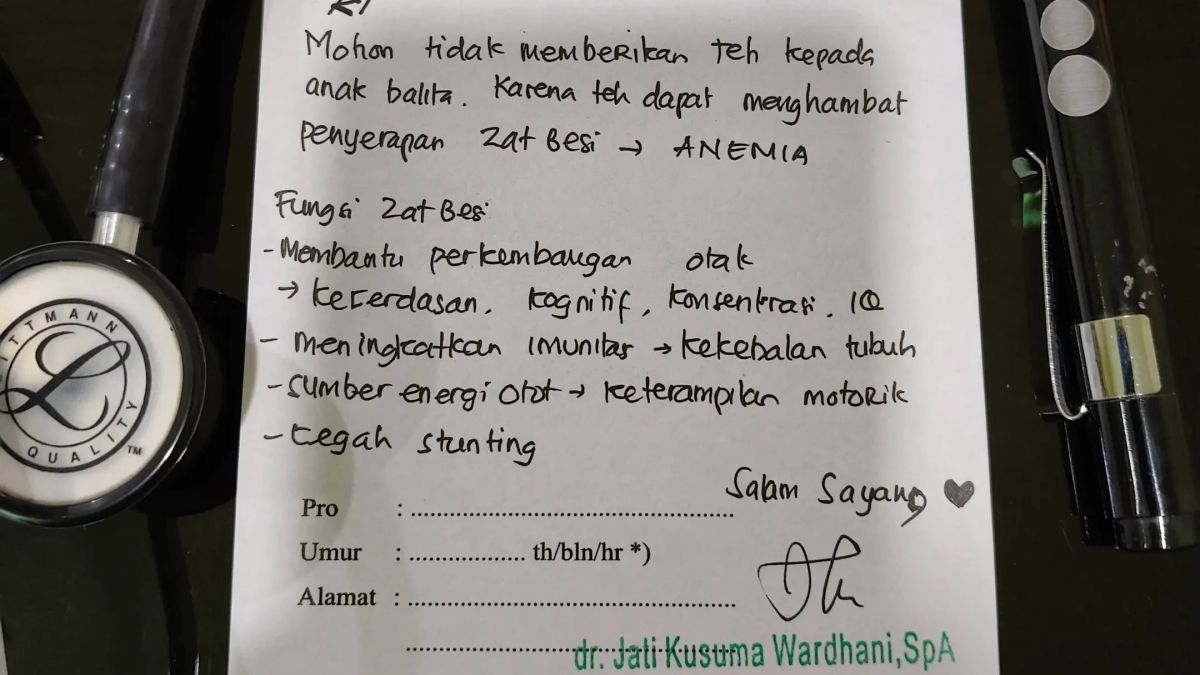 R/
Mohon tidak memberikan teh kepada
anak balita. Karena teh dapat menghambat
penyerapan zat Besi → ANEMIA
Fungsi zat Besi
- Membantu perkembangan otak
→ kecerdasan, kognitif, konsentrasi, IQ
- meningkatkan imunitas → kekebalan tubuh
- sumber energi otot → keterampilan motorik
- cegah stunting
Salam Sayang ♥
Pro : ..............................
Umur : .................. th/bln/hr *)
Alamat : ..............................
dr. Jati Kusuma Wardhani,SpA
LITTMANN
QUALITY
TM